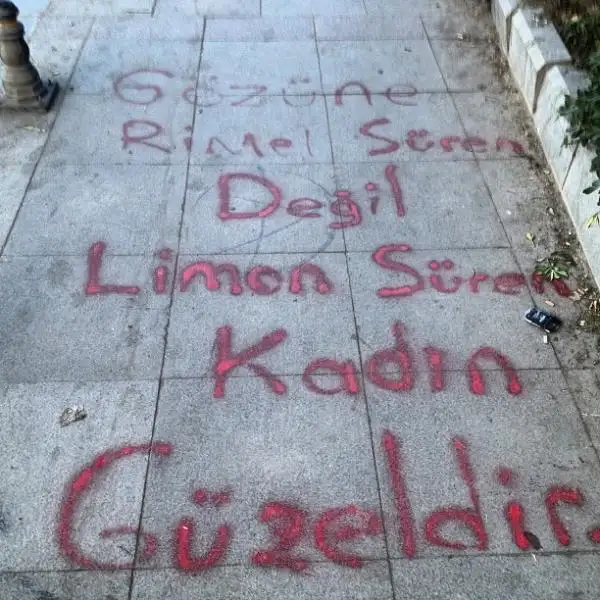 Gözüne
Rimel Süren
Değil
Limon Süren
Kadın
Güzeldir.